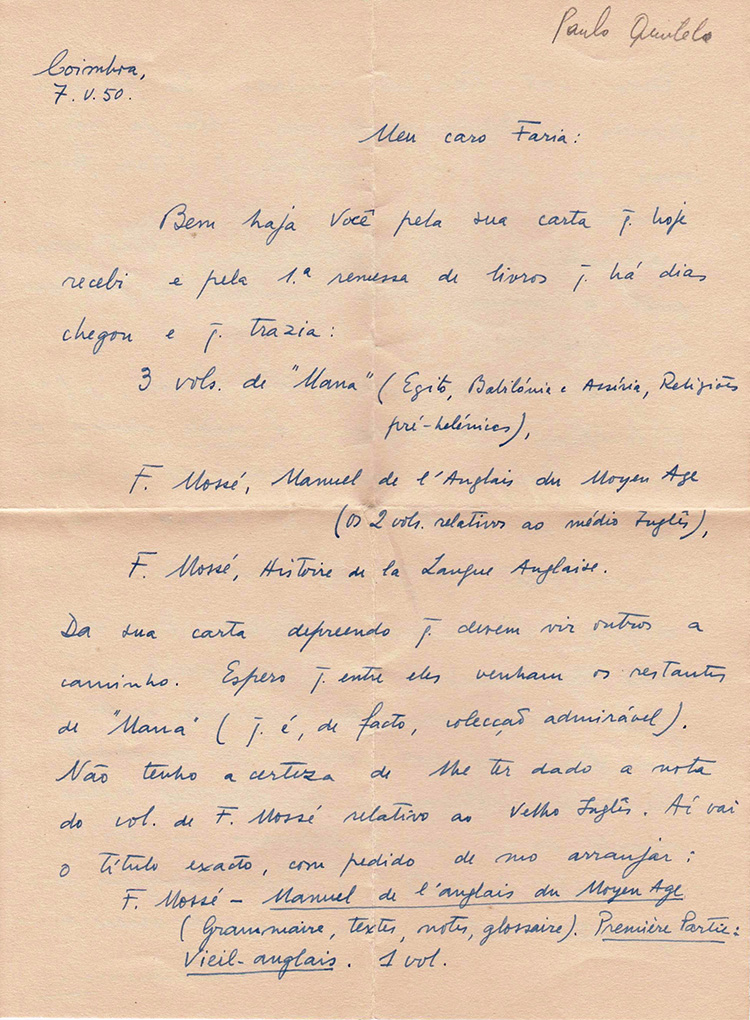 Paulo Quintela
Coimbra,
7.V.50.
Meu caro Faria:
Bem haja Você pela sua carta q̄. hoje
recebi e pela 1.ª remessa de livros q̄. há dias
chegou e q̄. trazia:
3 vols. de "Mana" (Egito, Babilónia e Assíria, Religiões
pré-helénicas),
F. Mossé, Manuel de l'Anglais du Moyen Age
(os 2 vols. relativos ao médio Inglês),
F. Mossé, Histoire de la Langue Anglaise.
Da sua carta depreendo q̄. devem vir outros a
caminho. Espero q̄. entre eles venham os restantes
de "Mana" (q̄. é, de facto, colecção admirável).
Não tenho a certeza de lhe ter dado a nota
do vol. de F. Mossé relativo ao Velho Inglês. Aí vai
o título exacto, com pedido de mo arranjar:
F. Mossé – Manuel de l'anglais du Moyen Age
(Grammaire, textes, notes, glossaire). Première Partie:
Vieil-anglais. 1 vol.